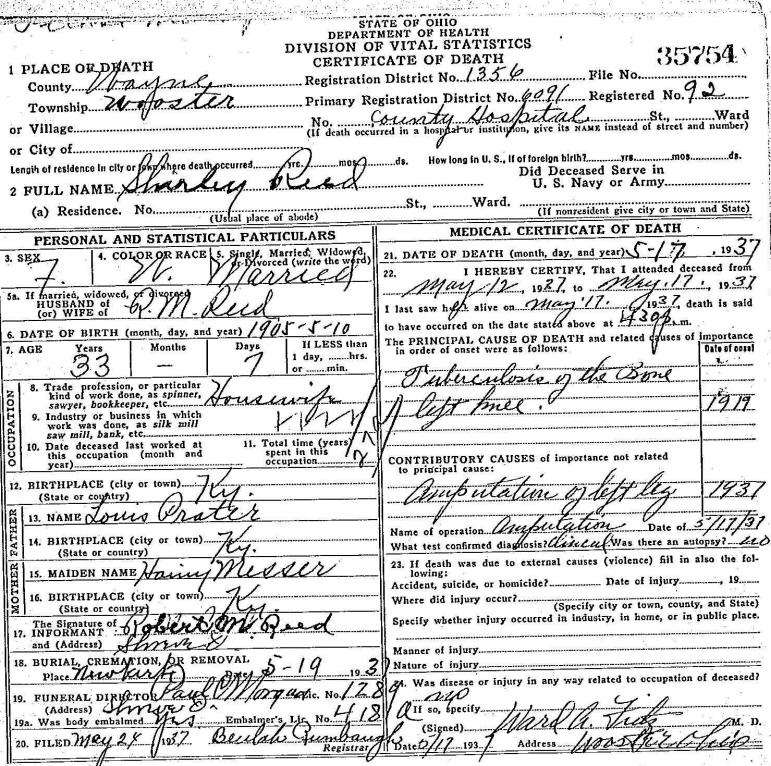 STATE OF OHIO
DEPARTMENT OF HEALTH
DIVISION OF VITAL STATISTICS
CERTIFICATE OF DEATH
35754
1 PLACE OF DEATH
County Wayne Registration District No. 1356 File No.
Township Wooster Primary Registration District No. 6091 Registered No. 92
or Village No. County Hospital St., Ward
(If death occurred in a hospital or institution, give its NAME instead of street and number)
or City of
Length of residence in city or town where death occurred yrs. mos. ds. How long in U. S., if of foreign birth? yrs. mos. ds.
2 FULL NAME Sharley Reed Did Deceased Serve in U. S. Navy or Army
(a) Residence. No. St., Ward.
(Usual place of abode) (If nonresident give city or town and State)
PERSONAL AND STATISTICAL PARTICULARS
3. SEX F. 4. COLOR OR RACE W. 5. Single, Married, Widowed, or Divorced (write the word) Married
5a. If married, widowed, or divorced
HUSBAND of
(or) WIFE of R. M. Reed
6. DATE OF BIRTH (month, day, and year) 1905-5-10
7. AGE Years 33 Months — Days 7 If LESS than 1 day, hrs. or min.
OCCUPATION
8. Trade profession, or particular kind of work done, as spinner, sawyer, bookkeeper, etc. Housewife
9. Industry or business in which work was done, as silk mill saw mill, bank, etc.
10. Date deceased last worked at this occupation (month and year)
11. Total time (years) spent in this occupation
12. BIRTHPLACE (city or town)
(State or country) Ky.
FATHER
13. NAME Louis Prater
14. BIRTHPLACE (city or town)
(State or country) Ky.
MOTHER
15. MAIDEN NAME Messer
16. BIRTHPLACE (city or town)
(State or country) Ky.
The Signature of
17. INFORMANT Robert M. Reed
and (Address)
18. BURIAL, CREMATION, OR REMOVAL
Place Newkirk Date 5-19 1937
19. FUNERAL DIRECTOR Paul Morgan Lic. No. 1289
(Address)
19a. Was body embalmed Yes Embalmer's Lic. No. 418
20. FILED May 24 1937 Beulah
Registrar
MEDICAL CERTIFICATE OF DEATH
21. DATE OF DEATH (month, day, and year) 5-17, 1937
22. I HEREBY CERTIFY, That I attended deceased from
May 12, 1937, to May 17, 1937
I last saw her alive on May 17, 1937, death is said
to have occurred on the date stated above at m.
The PRINCIPAL CAUSE OF DEATH and related causes of importance
in order of onset were as follows: Date of onset
Tuberculosis of the Bone
left knee. 1919
CONTRIBUTORY CAUSES of importance not related
to principal cause:
Amputation of left leg 1937
Name of operation Amputation Date of 5/17/37
What test confirmed diagnosis? Clinical Was there an autopsy? no
23. If death was due to external causes (violence) fill in also the following:
Accident, suicide, or homicide? Date of injury, 19
Where did injury occur?
(Specify city or town, county, and State)
Specify whether injury occurred in industry, in home, or in public place.
Manner of injury
Nature of injury
24. Was disease or injury in any way related to occupation of deceased?
no
If so, specify
(Signed) Ward A. M. D.
Date 5/17 1937 Address Wooster Ohio